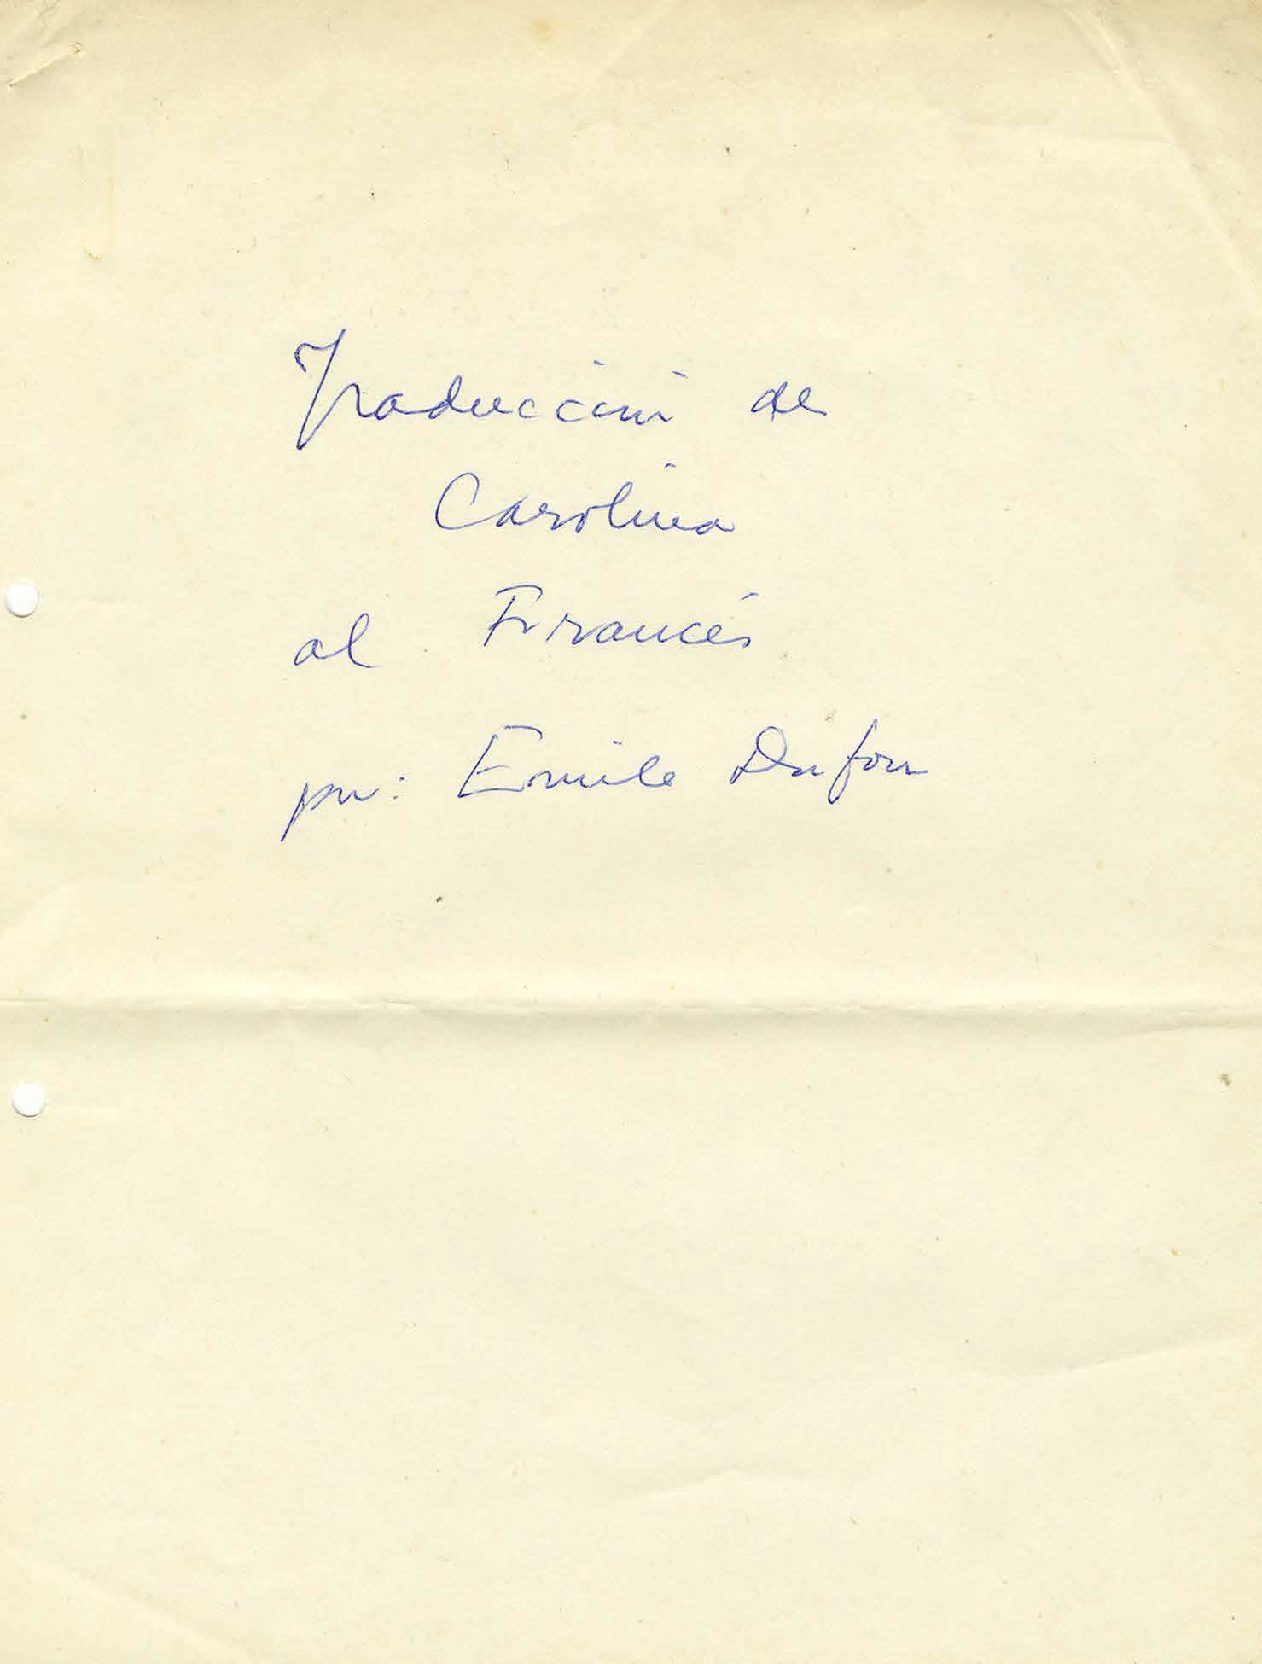 Traducción de
Carolina
al Francés
por: Emile Dufour